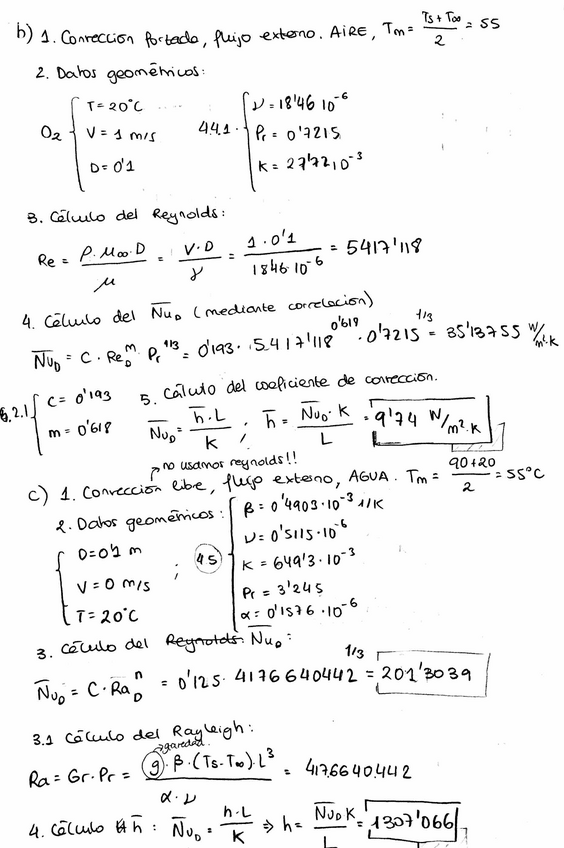 b) 1. Convección forzada, flujo externo. AIRE, Tm = (Ts + T∞)/2 = 55
2. Datos geométricos:
O2 { T = 20°C
V = 1 m/s
D = 0'1
4.4.1. { ν = 18'46 10^-6
Pr = 0'7215
K = 27'72 10^-3
3. Cálculo del Reynolds:
Re = ρ·μ∞·D / μ = V·D / ν = 1·0'1 / 1846·10^-6 = 5417'118
4. Cálculo del N̅u̅_D (mediante correlación)
N̅u̅_D = C · Re_D^m · Pr^1/3 = 0'193 · 5417'118^0'618 · 0'7215^1/3 = 35'13755 W/m²·K
6.2.1 { C = 0'193
m = 0'618
5. Cálculo del coeficiente de convección.
N̅u̅_D = h̅·L / K ; h̅ = N̅u̅_D·K / L = 9'74 W/m²·K
no usamos reynolds!!
c) 1. Convección libre, flujo externo, AGUA. Tm = (90+20)/2 = 55°C
2. Datos geométricos:
{ D = 0'1 m
V = 0 m/s
T = 20°C
; 4.5 { β = 0'4903·10^-3 1/K
ν = 0'5115·10^-6
K = 649'3·10^-3
Pr = 3'245
α = 0'1576·10^-6
3. Cálculo del Reynolds. N̅u̅_D:
N̅u̅_D = C·Ra_D^n = 0'125 · 4176640442^1/3 = 201'3039
3.1 Cálculo del Rayleigh:
gravedad
Ra = Gr·Pr = g·β·(Ts-T∞)·L³ / α·ν = 4176640442
4. Cálculo h̅: N̅u̅_D = h·L / K ⇒ h = N̅u̅_D K / L = 1307'066